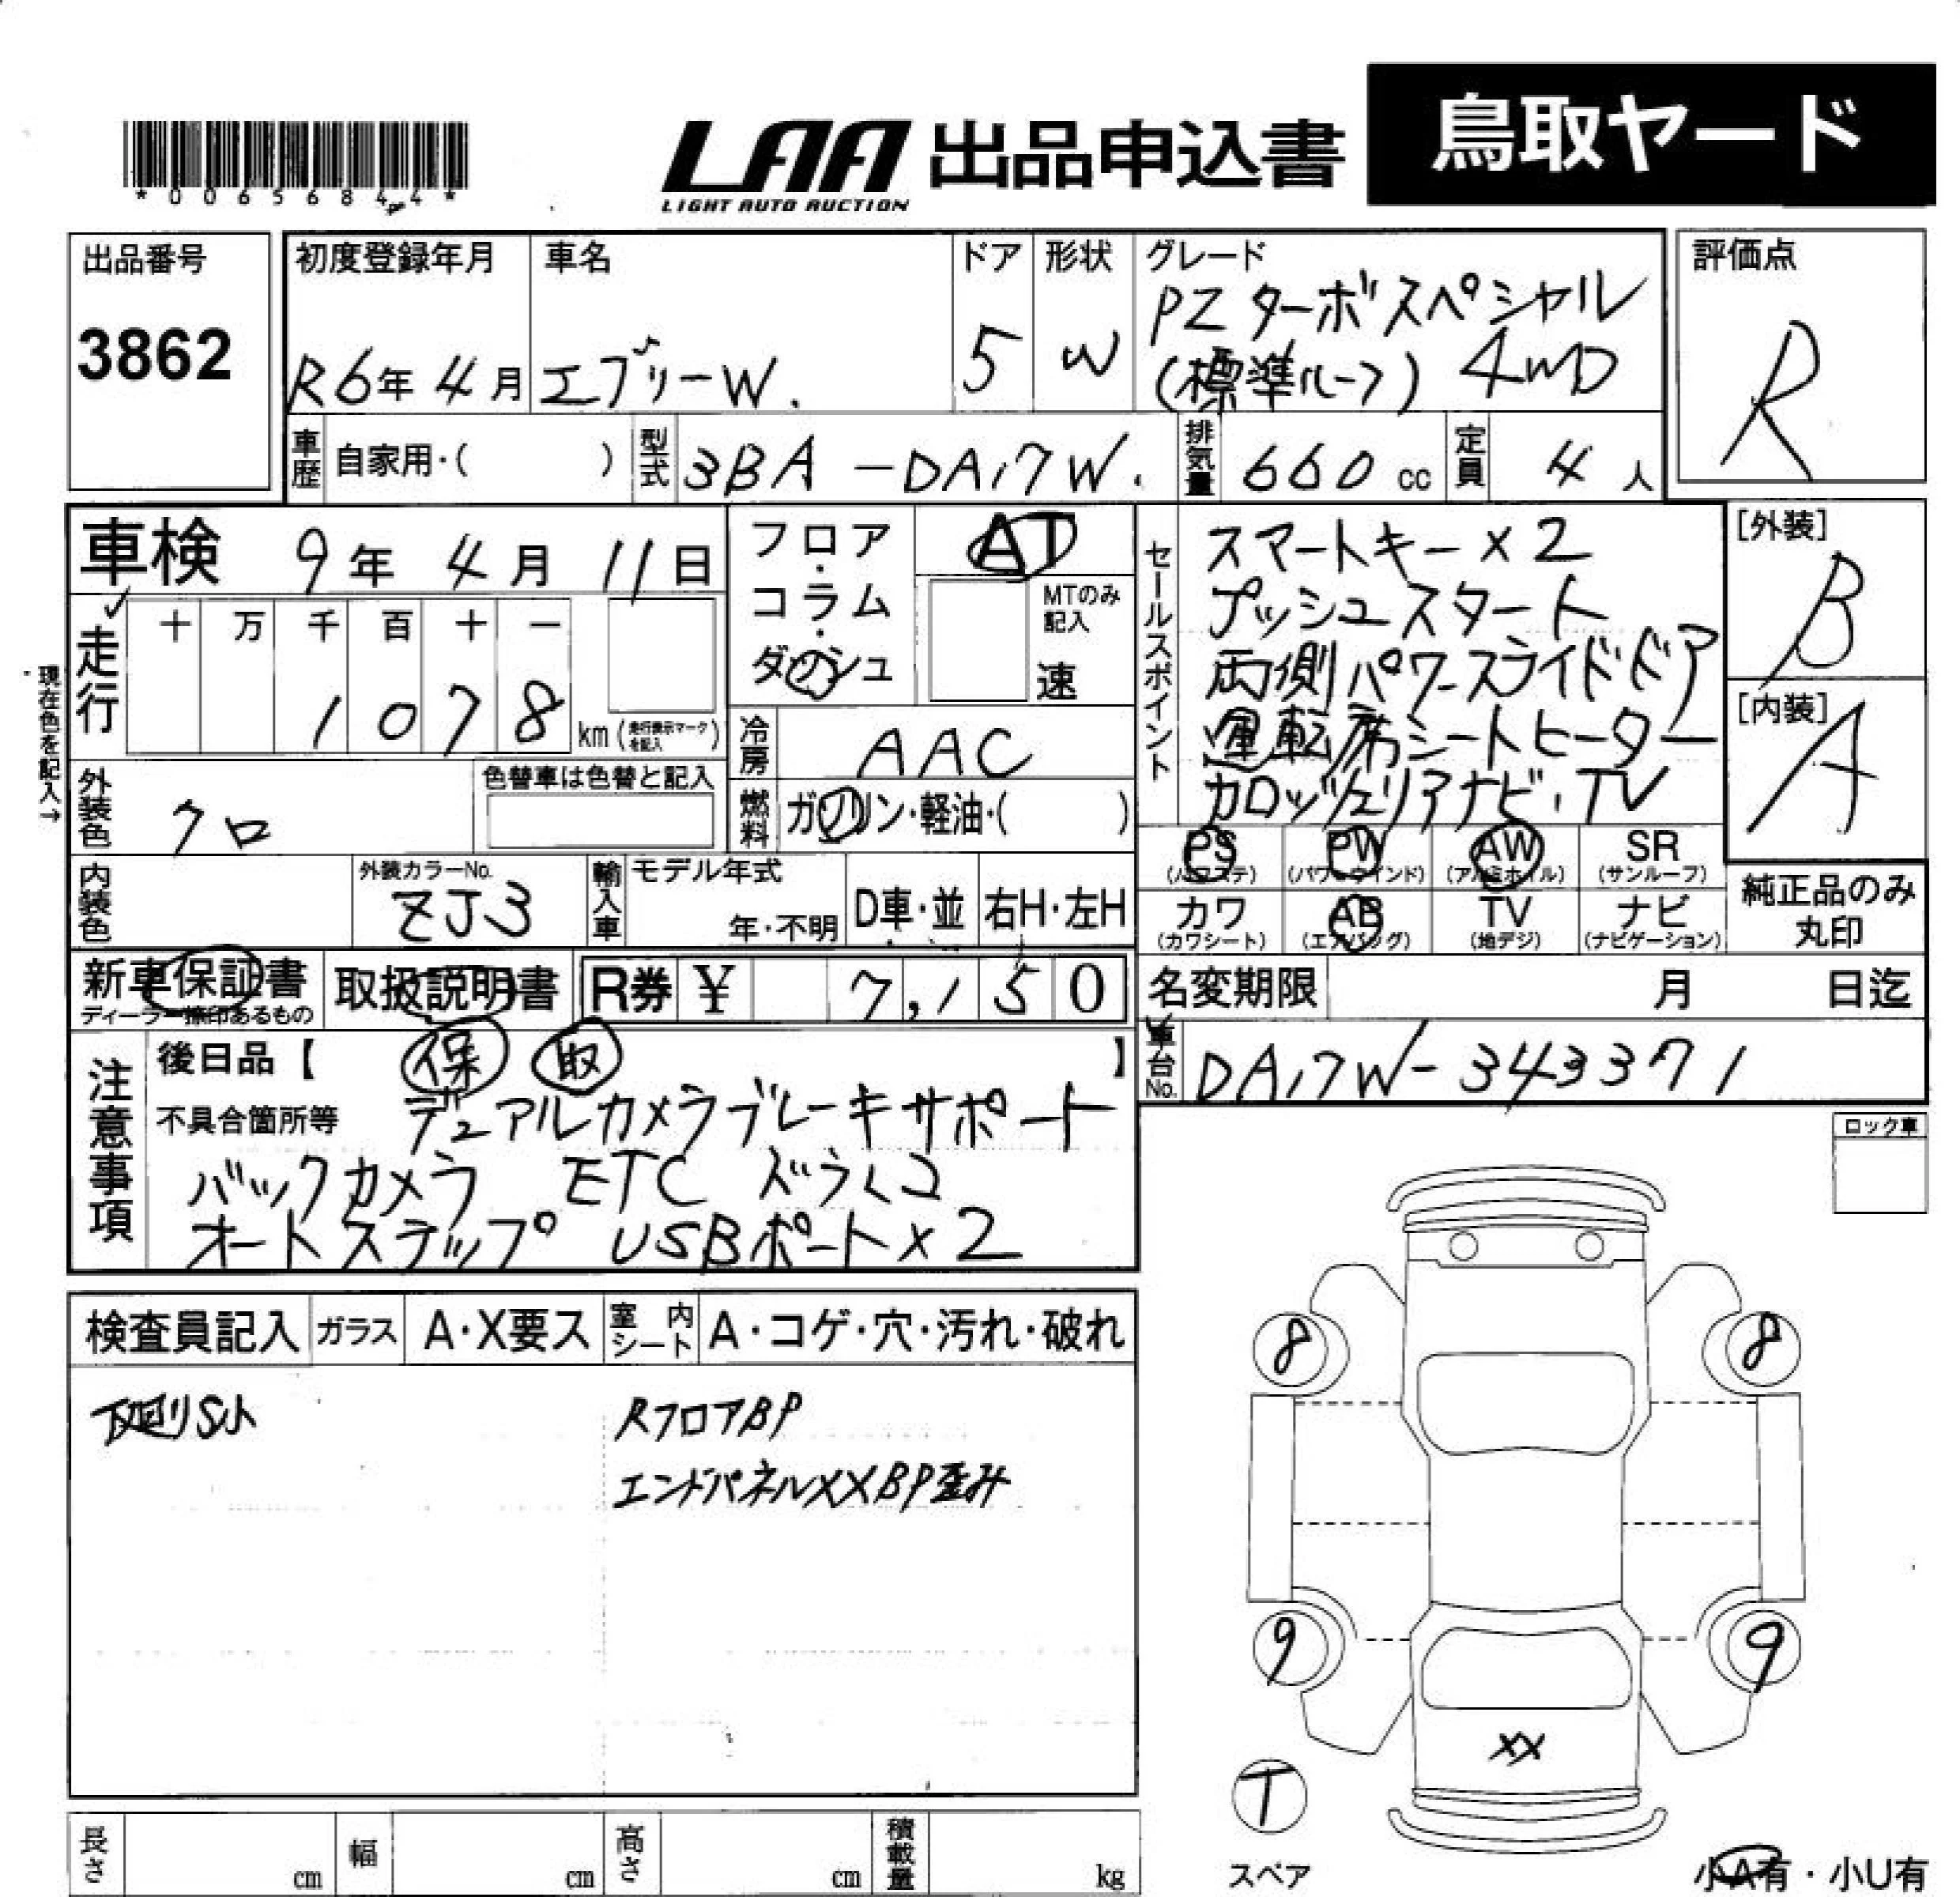 *00656844*
LAA 出品申込書 鳥取ヤード
LIGHT AUTO AUCTION
出品番号 3862
初度登録年月 R6年 4月
車名 エブリーW.
ドア 5
形状 W
グレード PZ ターボスペシャル
(標準ルーフ) 4WD
評価点 R
車歴 自家用・( )
型式 3BA-DA17W.
排気量 660 cc
定員 4 人
車検 9年 4月 11日
フロア・コラム・ダッシュ
AT
MTのみ記入
速
走行 十 万 千 百 十 一
1078 km (走行表示マークを記入)
現在色を記入→
冷房 AAC
外装色 クロ
色替車は色替と記入
燃料 ガソリン・軽油・( )
内装色
外装カラーNo. ZJ3
輸入車 モデル年式 年・不明 D車・並 右H・左H
新車保証書
ディーラー捺印あるもの
取扱説明書
R券 ¥ 7,150
セールスポイント
スマートキー×2
プッシュスタート
両側パワースライドドア
運転席シートヒーター
カロッツェリアナビ・TV
[外装] B
[内装] A
PS PW AW SR
(パワステ) (パワーウインド) (アルミホイル) (サンルーフ)
カワ AB TV ナビ
(カワシート) (エアバッグ) (地デジ) (ナビゲーション)
純正品のみ
丸印
名変期限 月 日迄
車台No. DA17W-343371
注意事項
後日品【 保 取 】
不具合箇所等 デュアルカメラブレーキサポート
バックカメラ ETC ドラレコ
オートステップ USBポート×2
ロック車
検査員記入 ガラス A・X要ス 室内シート A・コゲ・穴・汚れ・破れ
下廻りSト
RフロアBP
エンドパネルXXBP歪み
8 8
9 9
XX
T
スペア
長さ cm 幅 cm 高さ cm 積載量 kg
小A有・小U有